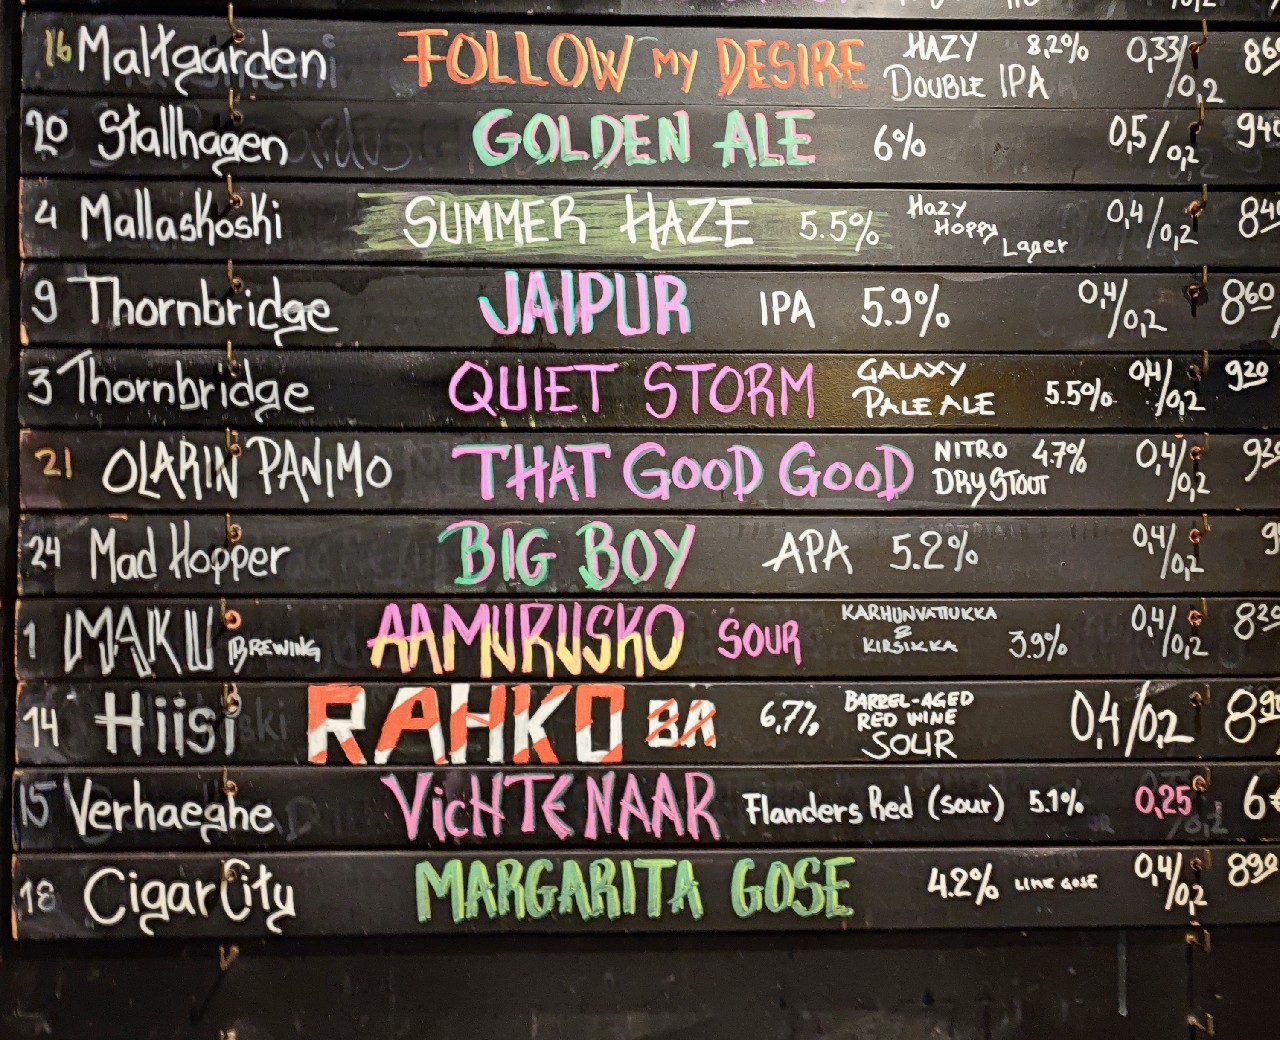 16 Maltgarden FOLLOW MY DESIRE HAZY DOUBLE IPA 8,2% 0,33/0,2
20 Stallhagen GOLDEN ALE 6% 0,5/0,2 940
4 Mallaskoski SUMMER HAZE 5.5% Hazy Hoppy Lager 0,4/0,2 840
9 Thornbridge JAIPUR IPA 5.9% 0,4/0,2 860
3 Thornbridge QUIET STORM GALAXY PALE ALE 5.5% 0,4/0,2 920
21 OLARIN PANIMO THAT GOOD GOOD NITRO DRY STOUT 4.7% 0,4/0,2
24 Mad Hopper BIG BOY APA 5.2% 0,4/0,2 9
1 IMAKU BREWING AAMURUSKO SOUR KARHUNVATUKKA & KIRSIKKA 3.9% 0,4/0,2 820
14 Hiisi RAHKO BA 6,7% BARREL-AGED RED WINE SOUR 0,4/0,2 890
15 Verhaeghe VicHTENAAR Flanders Red (sour) 5.1% 0,25 6
18 Cigar City MARGARITA GOSE 4.2% LIME GOSE 0,4/0,2 890